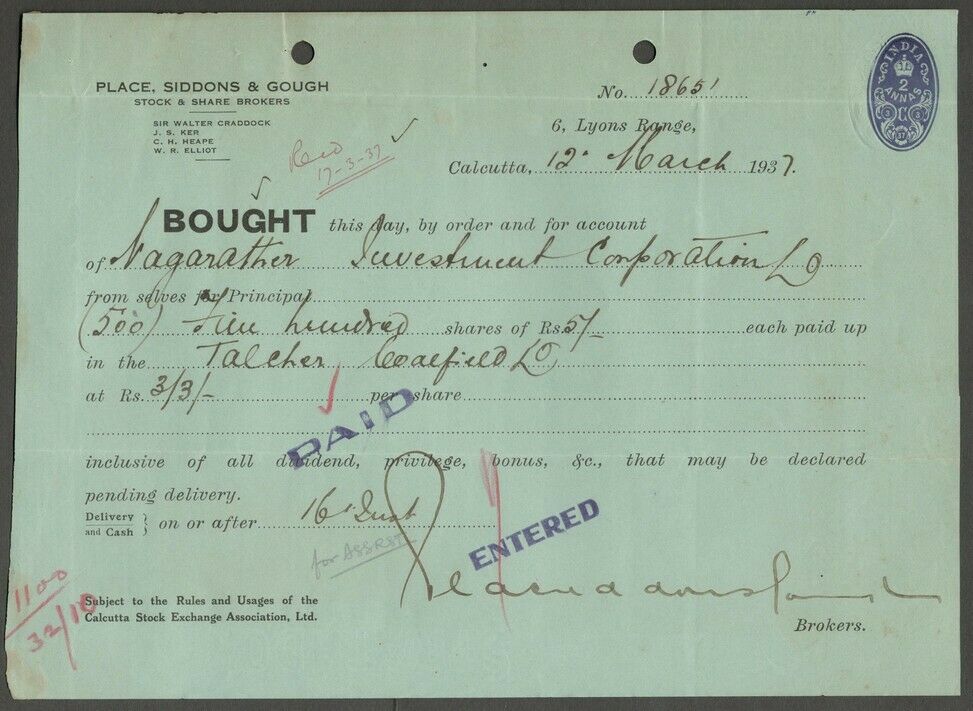 PLACE, SIDDONS & GOUGH
STOCK & SHARE BROKERS
SIR WALTER CRADDOCK
J. S. KER
C. H. HEAPE
W. R. ELLIOT
No. 18651
INDIA
2
ANNAS
6, Lyons Range,
Calcutta, 12 March 1937.
17-3-37
BOUGHT this day, by order and for account
of Nagarather Investment Corporation Ld
from selves for Principal
(500) Five hundred shares of Rs. 5/- each paid up
in the Talcher Coalfield Ld
at Rs. 3/3/- per share
PAID
inclusive of all dividend, privilege, bonus, &c., that may be declared
pending delivery.
Delivery and Cash } on or after 16 Inst
ENTERED
1100
32/10
Subject to the Rules and Usages of the
Calcutta Stock Exchange Association, Ltd.
Brokers.